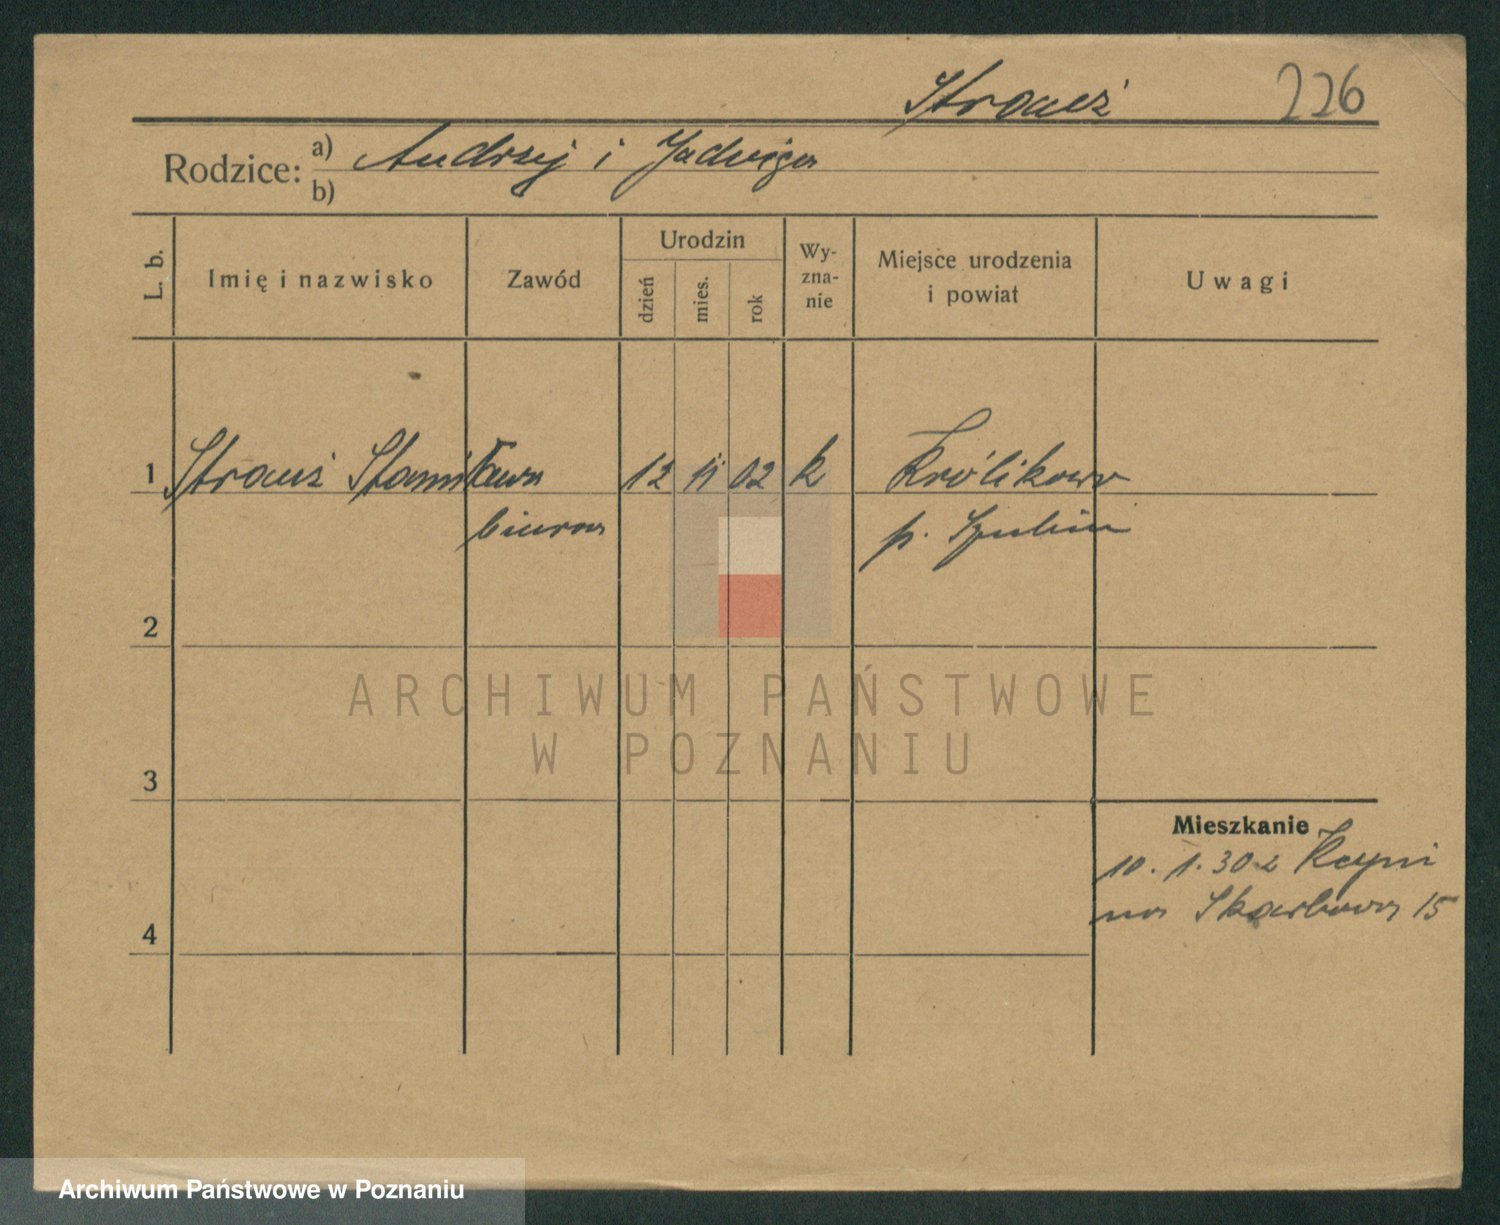 Strauż 226
Rodzice: a) Andrzej i Jadwiga
b)
L. b. Imię i nazwisko Zawód Urodzin dzień mies. rok Wy-zna-nie Miejsce urodzenia i powiat Uwagi
1 Strauż Stanisława 12 11 02 k Królikowo
biurowa p. Szubin
2
ARCHIWUM PAŃSTWOWE
W POZNANIU
3
Mieszkanie
10.1.30 z Kcyni
na Skarbowa 15
4
Archiwum Państwowe w Poznaniu